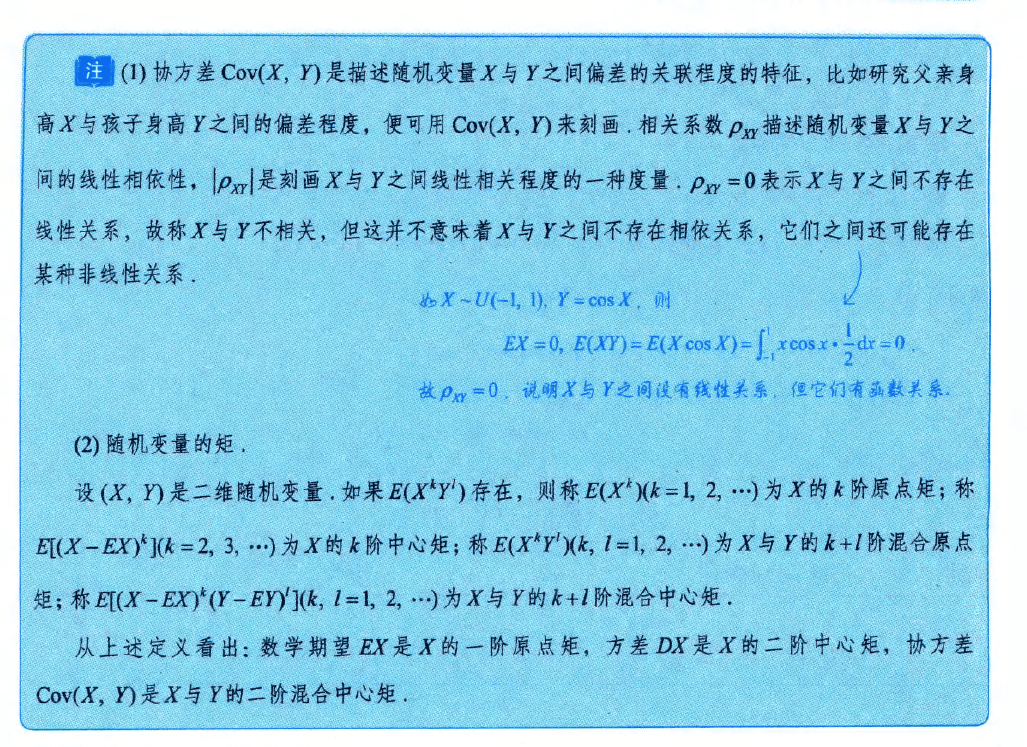 注 (1) 协方差 Cov(X, Y) 是描述随机变量 X 与 Y 之间偏差的关联程度的特征，比如研究父亲身
高 X 与孩子身高 Y 之间的偏差程度，便可用 Cov(X, Y) 来刻画．相关系数 ρ_{XY} 描述随机变量 X 与 Y 之
间的线性相依性，|ρ_{XY}| 是刻画 X 与 Y 之间线性相关程度的一种度量．ρ_{XY} = 0 表示 X 与 Y 之间不存在
线性关系，故称 X 与 Y 不相关，但这并不意味着 X 与 Y 之间不存在相依关系，它们之间还可能存在
某种非线性关系．
如 X ~ U(−1, 1), Y = cos X，则
EX = 0, E(XY) = E(X cos X) = ∫_{−1}^{1} x cos x · \frac{1}{2} dx = 0．
故 ρ_{XY} = 0，说明 X 与 Y 之间没有线性关系，但它们有函数关系．
(2) 随机变量的矩．
设 (X, Y) 是二维随机变量．如果 E(X^kY^l) 存在，则称 E(X^k)(k = 1, 2, ⋯) 为 X 的 k 阶原点矩；称
E[(X − EX)^k](k = 2, 3, ⋯) 为 X 的 k 阶中心矩；称 E(X^kY^l)(k, l = 1, 2, ⋯) 为 X 与 Y 的 k + l 阶混合原点
矩；称 E[(X − EX)^k(Y − EY)^l](k, l = 1, 2, ⋯) 为 X 与 Y 的 k + l 阶混合中心矩．
从上述定义看出：数学期望 EX 是 X 的一阶原点矩，方差 DX 是 X 的二阶中心矩，协方差
Cov(X, Y) 是 X 与 Y 的二阶混合中心矩．